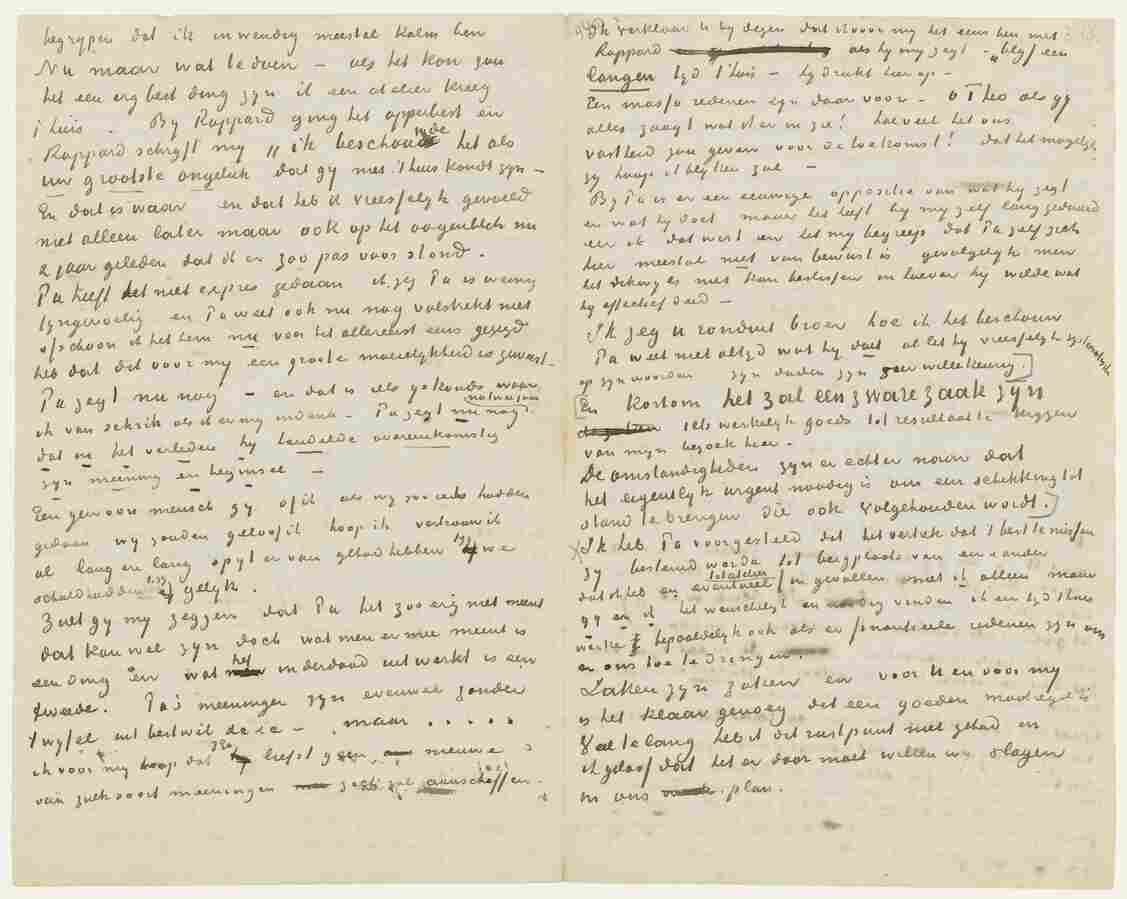 begrypen dat ik inwendig meestal kalm ben
Nu maar wat te doen – als het kon zou
het een erg best ding zyn ik een atelier kreeg
t'huis. By Rappard ging het opperbest en
Rappard schryft my „ ik beschouwde het als
uw grootste ongeluk dat gy niet t'huis kondt zyn –
En dat is waar en dat heb ik vreeselyk gevoeld
niet alleen later maar ook op het oogenblik nu
2 jaar geleden dat ik er zoo pas voor stond.
Pa heeft het niet expres gedaan ik zeg Pa is weinig
fyngevoelig en Pa weet ook nu nog volstrekt niet
ofschoon ik het hem nu voor het allereerst eens gezegd
heb dat dit voor my een groote moeielykheid is geweest –
Pa zegt nu nog – en dat is iets goddoms waar
ik van schrik als ik er my indenk – Pa zegt nu nog
dat in het verleden hy handelde overeenkomstig
zyn meening en beginsel –
Een gewoon mensch gy of ik als wy zoo iets hadden
gedaan wy zouden geloof ik hoop ik vertrouw ik
al lang en lang spyt er van gehad hebben wy we
schuld hadden of gelyk.
Zult gy my zeggen dat Pa het zoo erg niet meent
dat kan wel zyn doch wat men er mee meent is
een ding en wat het inderdaad uitwerkt is een
tweede. Pa's meeningen zyn evenwel zonder
twyfel uit bestwil deze – maar . . . . .
ik voor my hoop dat Pa liefst geen nieuwe
van zulk soort meeningen zich zal aanschaffen.
Ik verklaar u by dezen dat ik voor my het eens ben met
Rappard als hy my zegt – „blyf een
langen tyd t'huis – hy drukt hier op –
Een massa redenen zyn daar voor – O Theo als gy
alles zaagt wat ik er in zie! hoeveel het ons
vastheid zou geven voor de toekomst! dat het mogelyk
zy hoop ik blyken zal –
By Pa is er een eeuwige oppositie van wat hy zegt
en wat hy doet maar het heeft by my zelf lang geduurd
eer ik dat wist en het my begreep dat Pa zelf zich
hier meestal niet van bewust is gevolgelyk men
het dikwyls niet kan beslissen in hoever hy wilde wat
hy effectief deed –
Ik zeg u ronduit broer hoe ik het beschouw
Pa weet niet altyd wat hy doet al let hy vreeselyk systematisch
op zyn woorden zyn daden zyn zeer willekeurig.
En kortom het zal een zware zaak zyn
iets werkelyk goeds tot resultaat te krygen
van myn bezoek hier.
De omstandigheden zyn er echter naar dat
het eigentlyk urgent noodig is om een schikking tot
stand te brengen die ook volgehouden wordt.
Ik heb Pa voorgesteld dat het vertrek dat 't best te missen
zy bestemd worde tot bergplaats van een en ander
dat ik heb en eventueel tot atelier in gevallen niet ik alleen maar
gy en ik het wenschelyk en noodig vinden ik een tyd t'huis
werke bepaaldelyk ook als er finantieele redenen zyn om
er ons toe te dringen.
Zaken zyn zaken en voor U en voor my
is het klaar genoeg dit een goeden maatregel is
Veel te lang heb ik dit rustpunt niet gehad en
ik geloof dat het er door moet willen wy slagen
in ons plan.